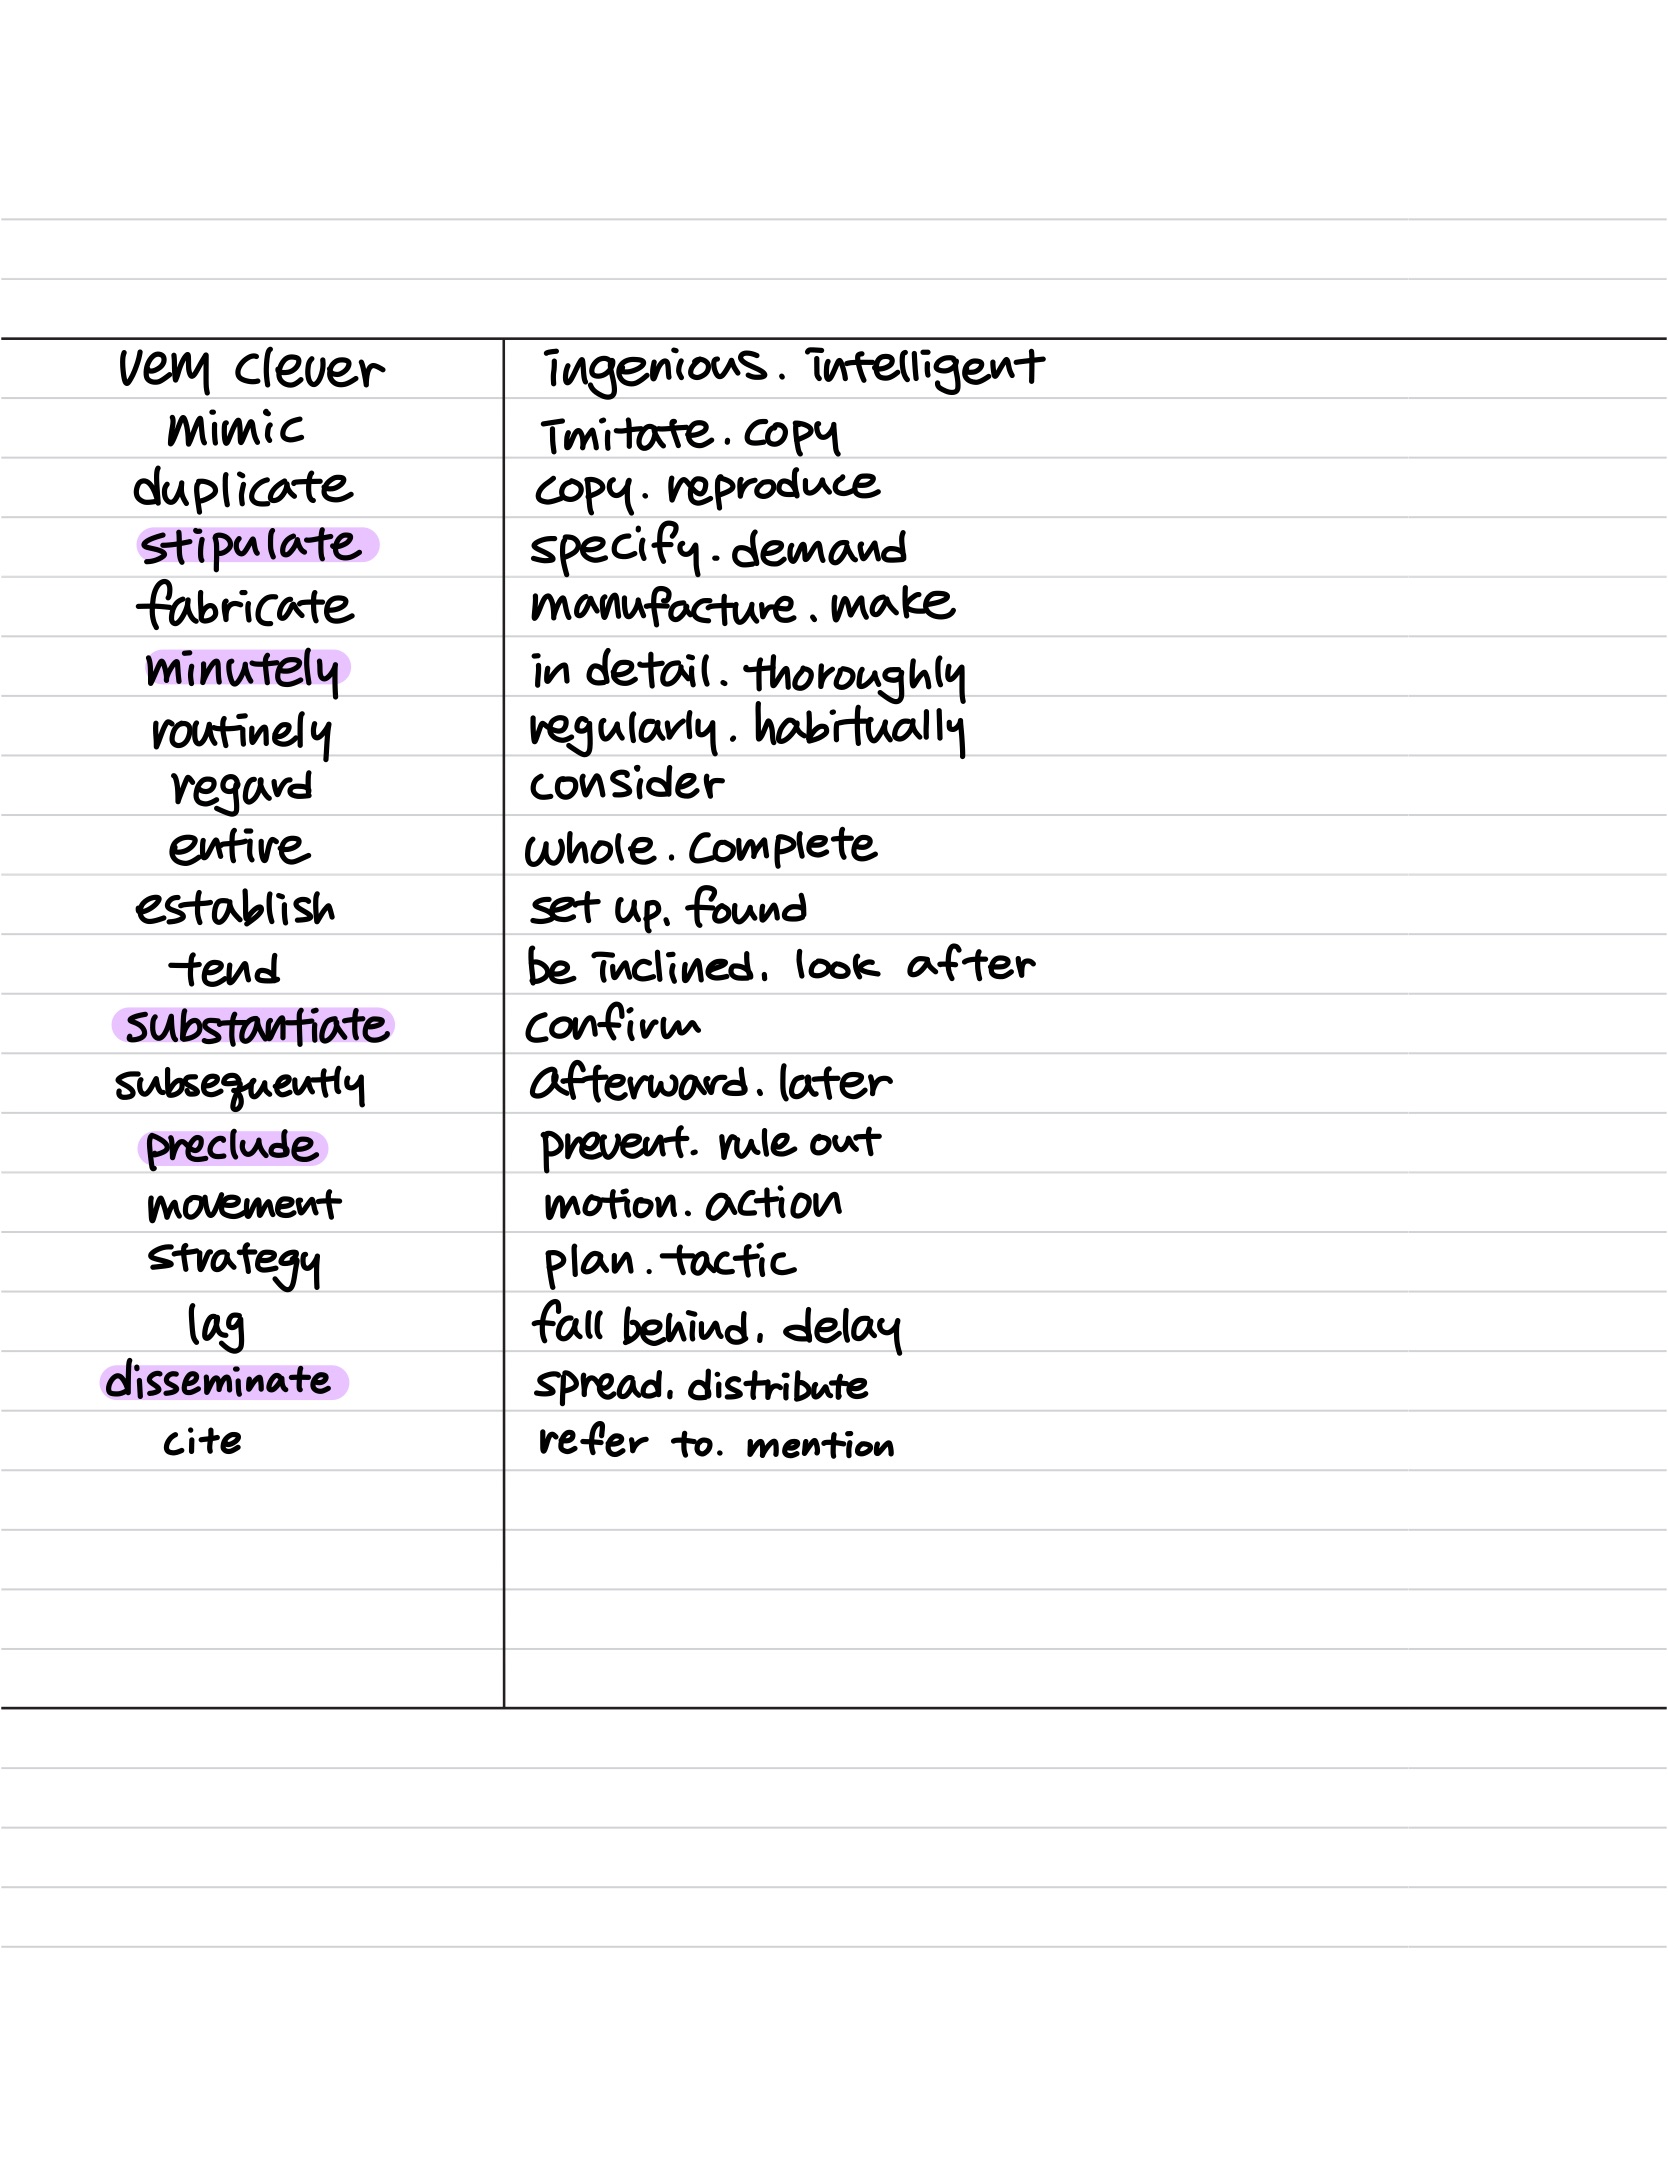 very clever ingenious. intelligent
mimic imitate. copy
duplicate copy. reproduce
stipulate specify. demand
fabricate manufacture. make
minutely in detail. thoroughly
routinely regularly. habitually
regard consider
entire whole. complete
establish set up. found
tend be inclined. look after
substantiate confirm
subsequently afterward. later
preclude prevent. rule out
movement motion. action
strategy plan. tactic
lag fall behind. delay
disseminate spread. distribute
cite refer to. mention